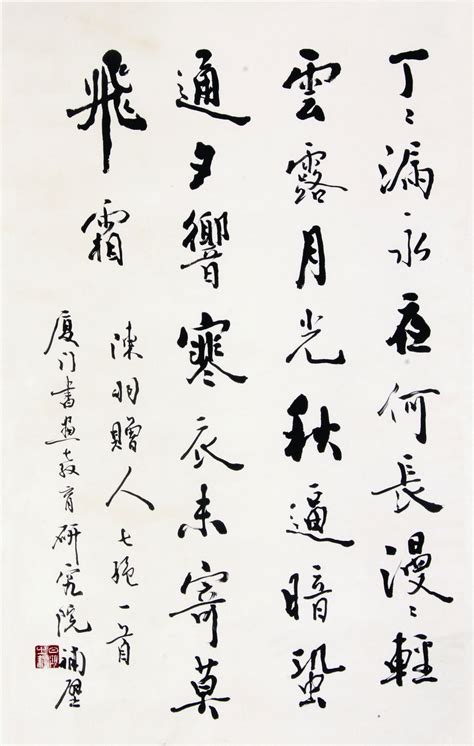 丁〻漏永夜何長漫〻輕
雲露月光秋逼暗蛩
通夕響寒衣未寄莫
飛霜
陳羽贈人七絕一首
厦门書画教育研究院補壁